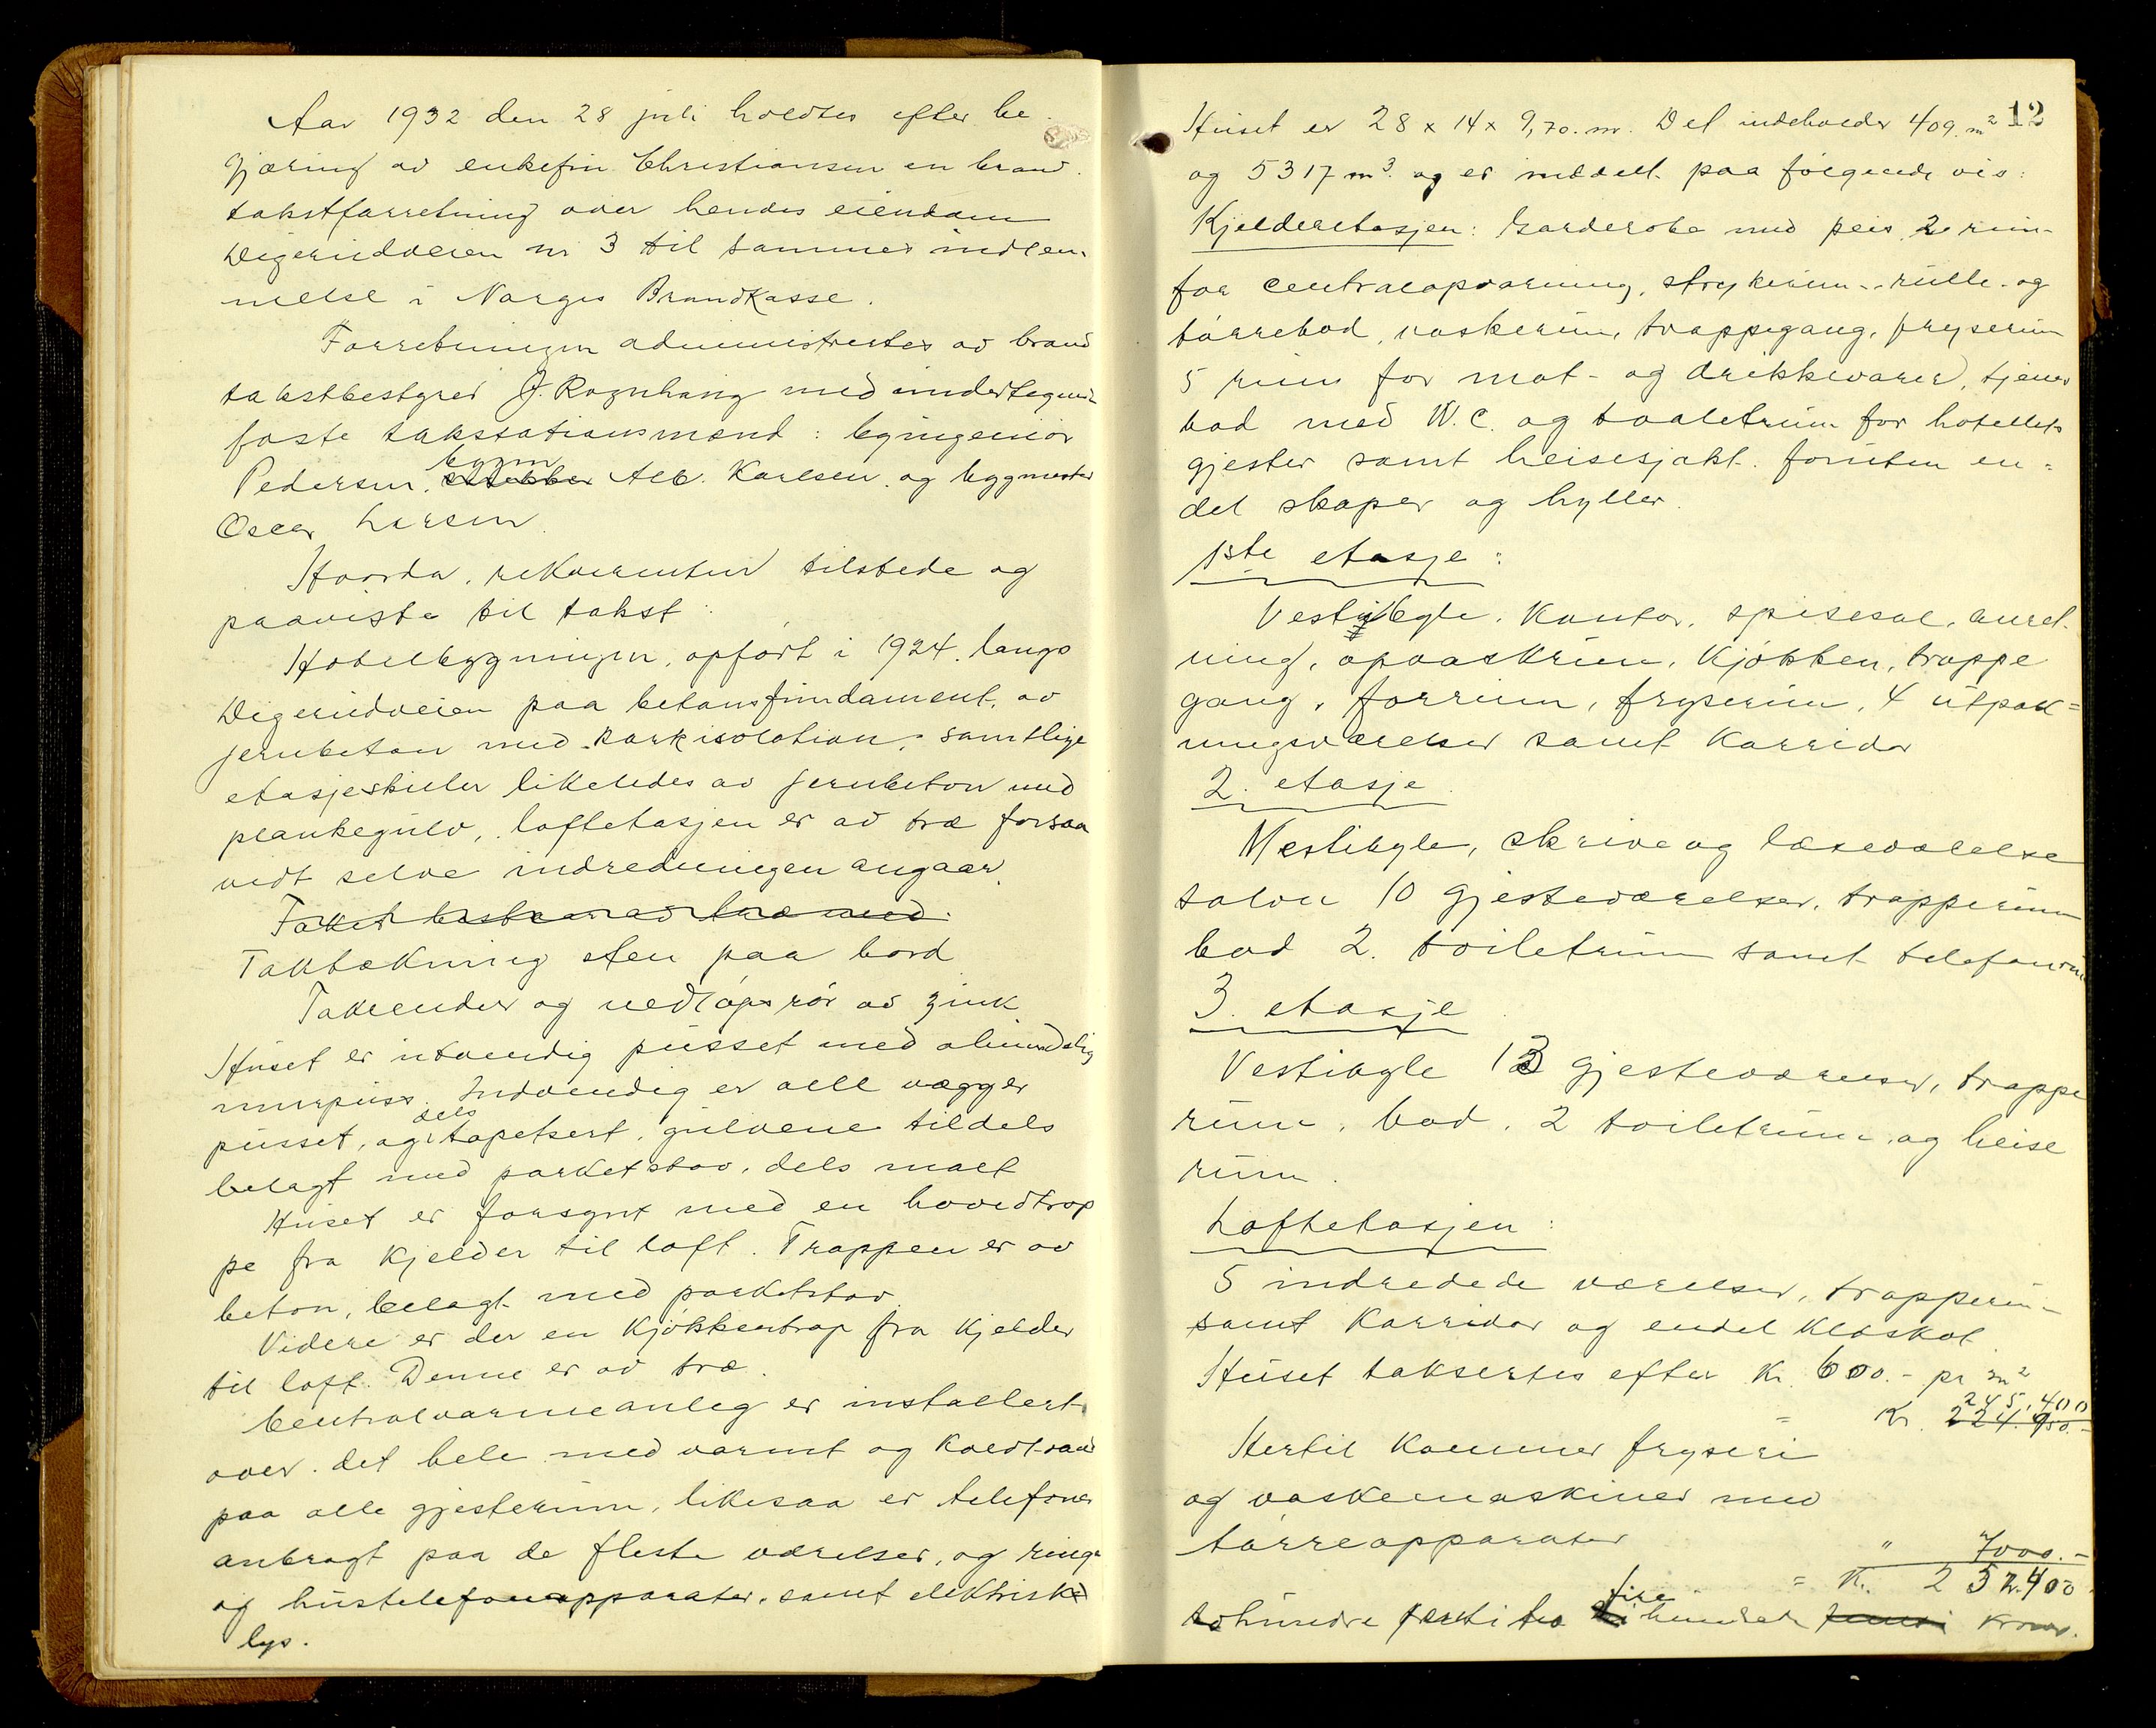 Aar 1932 den 28 juli holdtes efter be-
gjæring av enkefru Christiansen en brand-
takstforretning over hendes eiendom
Digermulveien nr 3 til sammes indlem-
melse i Norges Brandkasse.
Forretningen administrertes av brand
takstbestyrer J. Rognhaug med undertegnede
faste takstationsmænd: byingeniør
bygm
Pedersen, Alb. Karlsen og bygmester
Oscar Larsen
Hvorda, rekvirenten tilstede og
paaviste til takst:
Hotelbygningen, opført i 1924, langs
paa betonsfundament, av
jernbeton med korkisolation, samtlige
etasjeskiller likeledes av jernbeton med
plankegulv, loftetasjen er av træ forsaa
vidt selve indredningen angaar.
Taket bestaar av træ med
Taktækning sten paa bord
Takrender og nedløpsrør av zink
Huset er utvendig pusset med alminndelig
murpuss. Indvendig er alle vægger
dels
pusset, og tapetsert, gulvene tildels
belagt med parketstav, dels malt
Huset er forsynt med en hovedtrap
pe fra kjelder til loft. Trappen er av
beton, belagt med parketstav
Videre er der en kjøkkentrap fra kjelder
til loft. Denne er av træ.
Centralvarmeanleg er installert
over det hele med varmt og koldt vand
paa alle gjesterum, likesaa er telefoner
anbragt paa de fleste værelser, og ringe
og hustelefonapparater, samt elektrisk
lys.
12
Huset er 28 x 14 x 9,70 m. Det indeholder 409 m²
og 5317 m³. og er inddelt paa følgende vis:
Kjelderetasjen: Garderobe med peis, 2 rum
for centralopvarming, strykerum, rulle- og
tørrebod, vaskerum, trappegang, fryserum
5 rum for mat- og drikkevarer, tjener
bad med W.C. og toaletrum for hotellets
gjester samt heisesjakt. foruten en=
del skaper og hyller.
1ste etasje:
Vestibyle, kontor, spisesal, anret-
ning, opvaskrum, kjøkken, trappe
gang, forrum, fryserum, 4 utpak=
ningsværelser samt korridor
2. etasje
Vestibyle, skrive og læseværelse
salon 10 gjesteværelser, trapperum
bad 2. toiletrum samt telefonrum
3. etasje
Vestibyle 13 gjesteværelser, trappe
rum, bad, 2 toiletrum og heise
rum.
Loftetasjen:
5 indredede værelser, trapperum
samt korridor og endel kloskot
Huset taksertes efter Kr. 600.- pr m²
245.400
= Kr. 224.950.-
Hertil kommer fryseri
og vaskemaskiner med
tørreapparater " 7000.-
= Kr. 252.400
fire
tohundre femti to hundrede kroner.